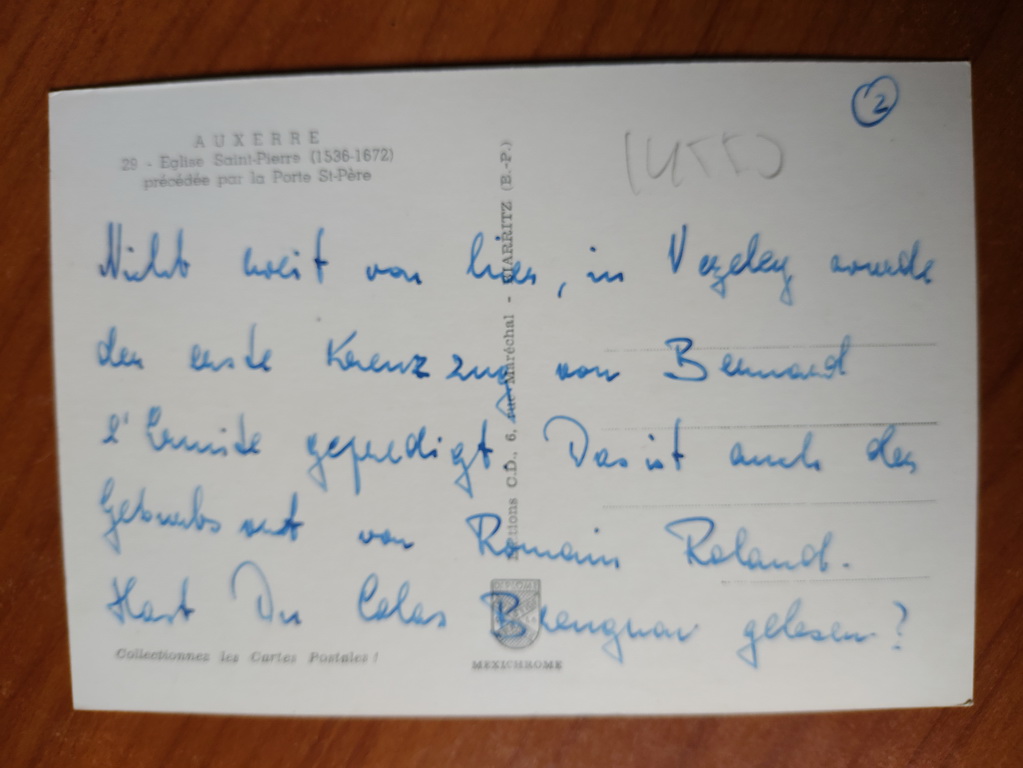 2
AUXERRE
29 - Eglise Saint-Pierre (1536-1672)
précédée par la Porte St-Père
Nicht weit von hier, in Vezeley wurde
der erste Kreuzzug von Bernard
l'Ermite gepredigt. Das ist auch der
Geburtsort von Romain Roland.
Hast Du Colas Breugnon gelesen?
Collectionnez les Cartes Postales !
Editions C.D., 6, rue Maréchal - BIARRITZ (B.-P.)
MEXICHROME